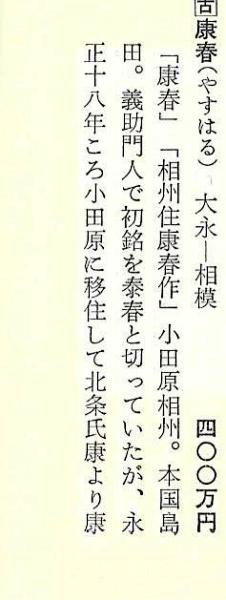 古康春(やすはる) 大永―相模 四〇〇万円
「康春」「相州住康春作」小田原相州。本国島
田。義助門人で初銘を泰春と切っていたが、永
正十八年ころ小田原に移住して北条氏康より康